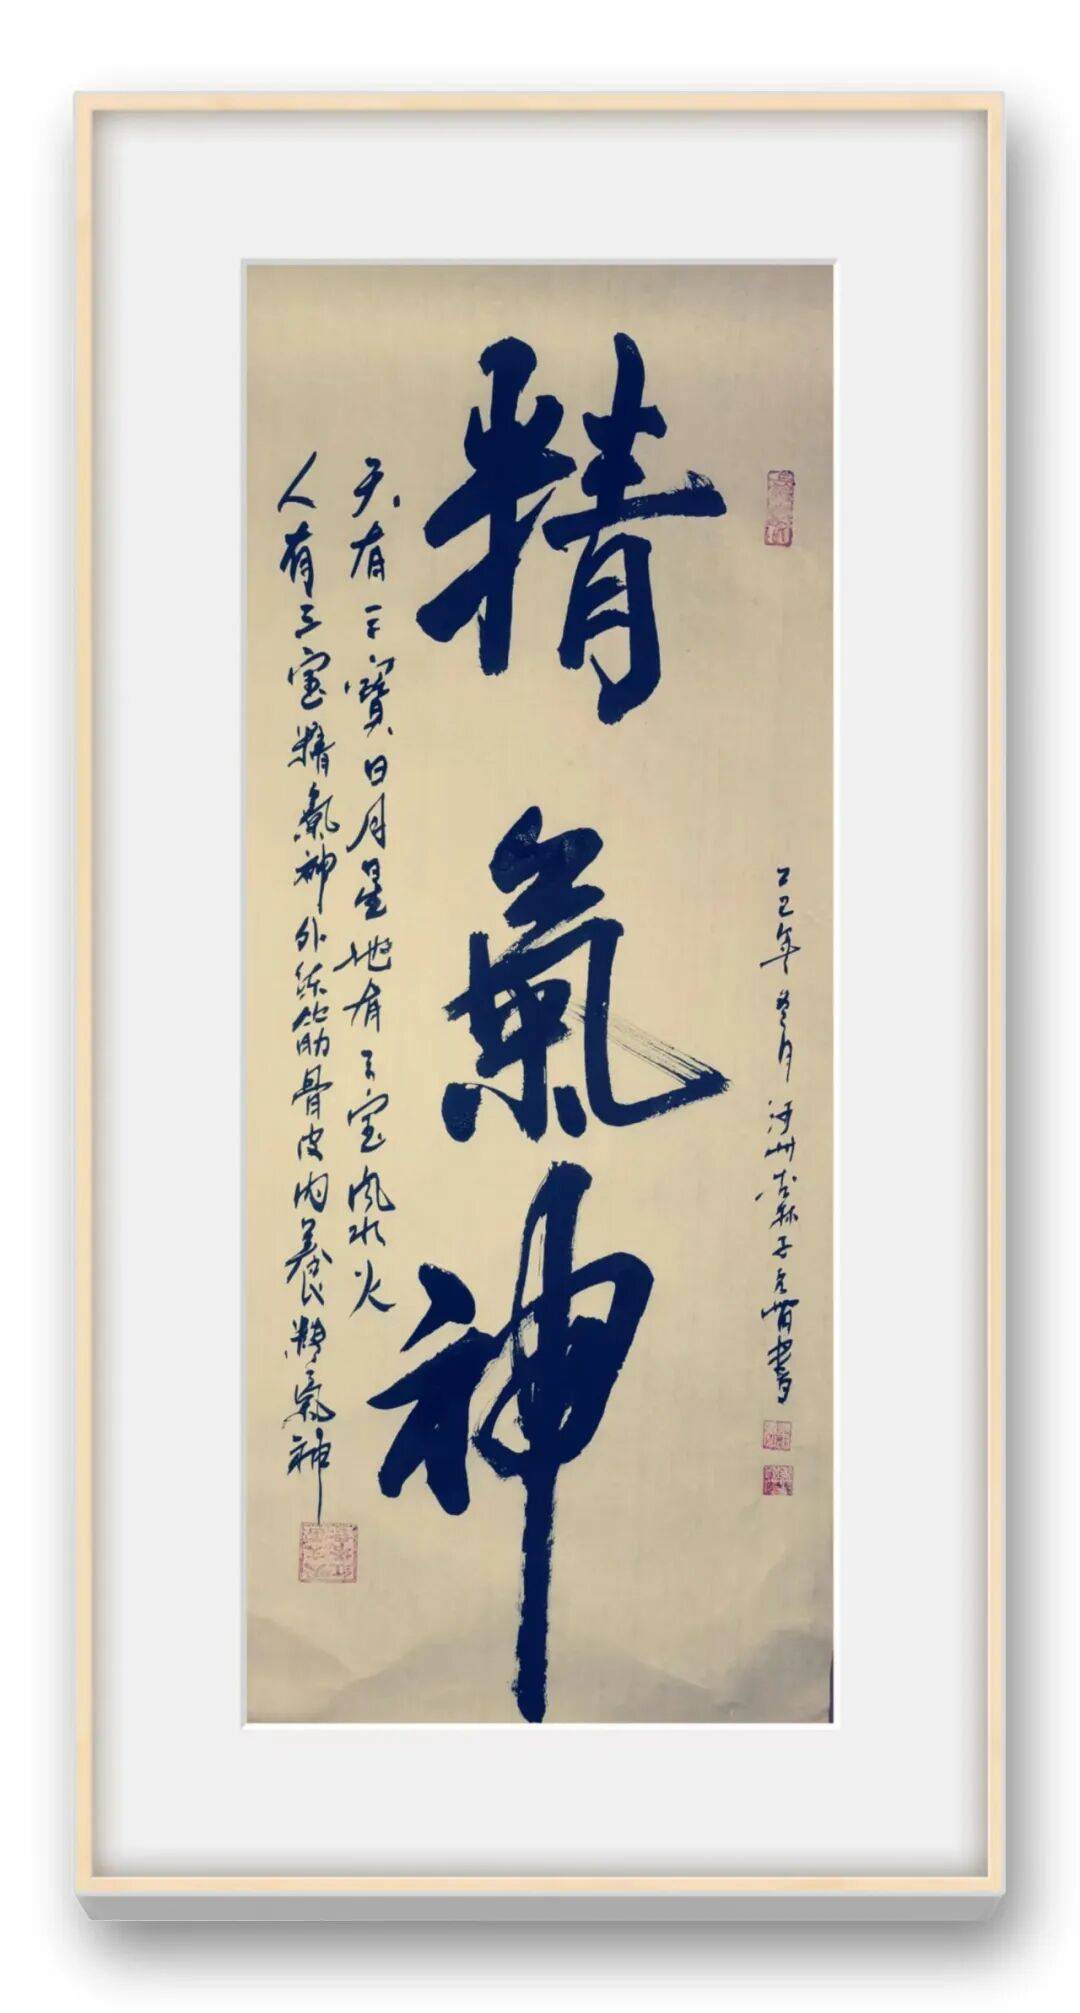 乙巳年冬月 河州 林子 書
精氣神
天有三寶日月星地有三宝风水火
人有三宝精氣神外练筋骨皮内養精氣神